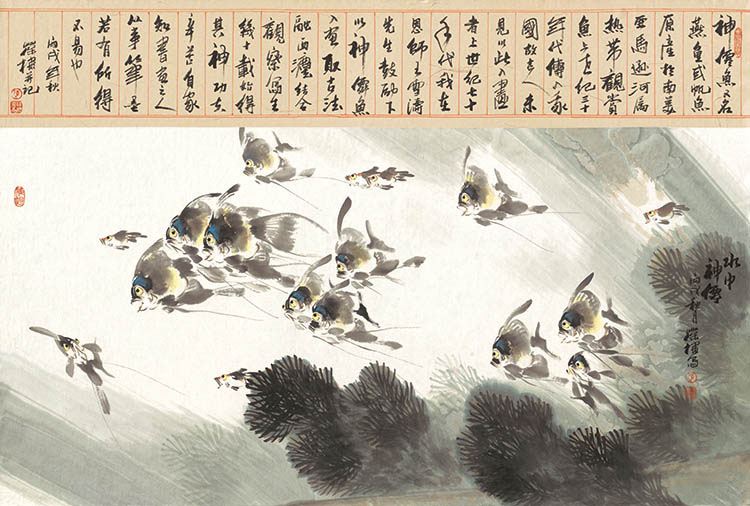 神僊魚又名
燕魚或帆魚
原産於南美
亞馬遜河屬
熱帶觀賞
魚上世紀三十
年代傳入我
國故古人未
見以此入畫
者上世紀七十
年代我在
恩師王雪濤
先生鼓勵下
以神僊魚
入畫取古法
融西灋結合
觀察寫生
幾十載始得
其神功夫
辛苦自家
知書畫之人
從事筆墨
若有所得
不易也
丙戌秋
并記
水中
神僊
丙戌